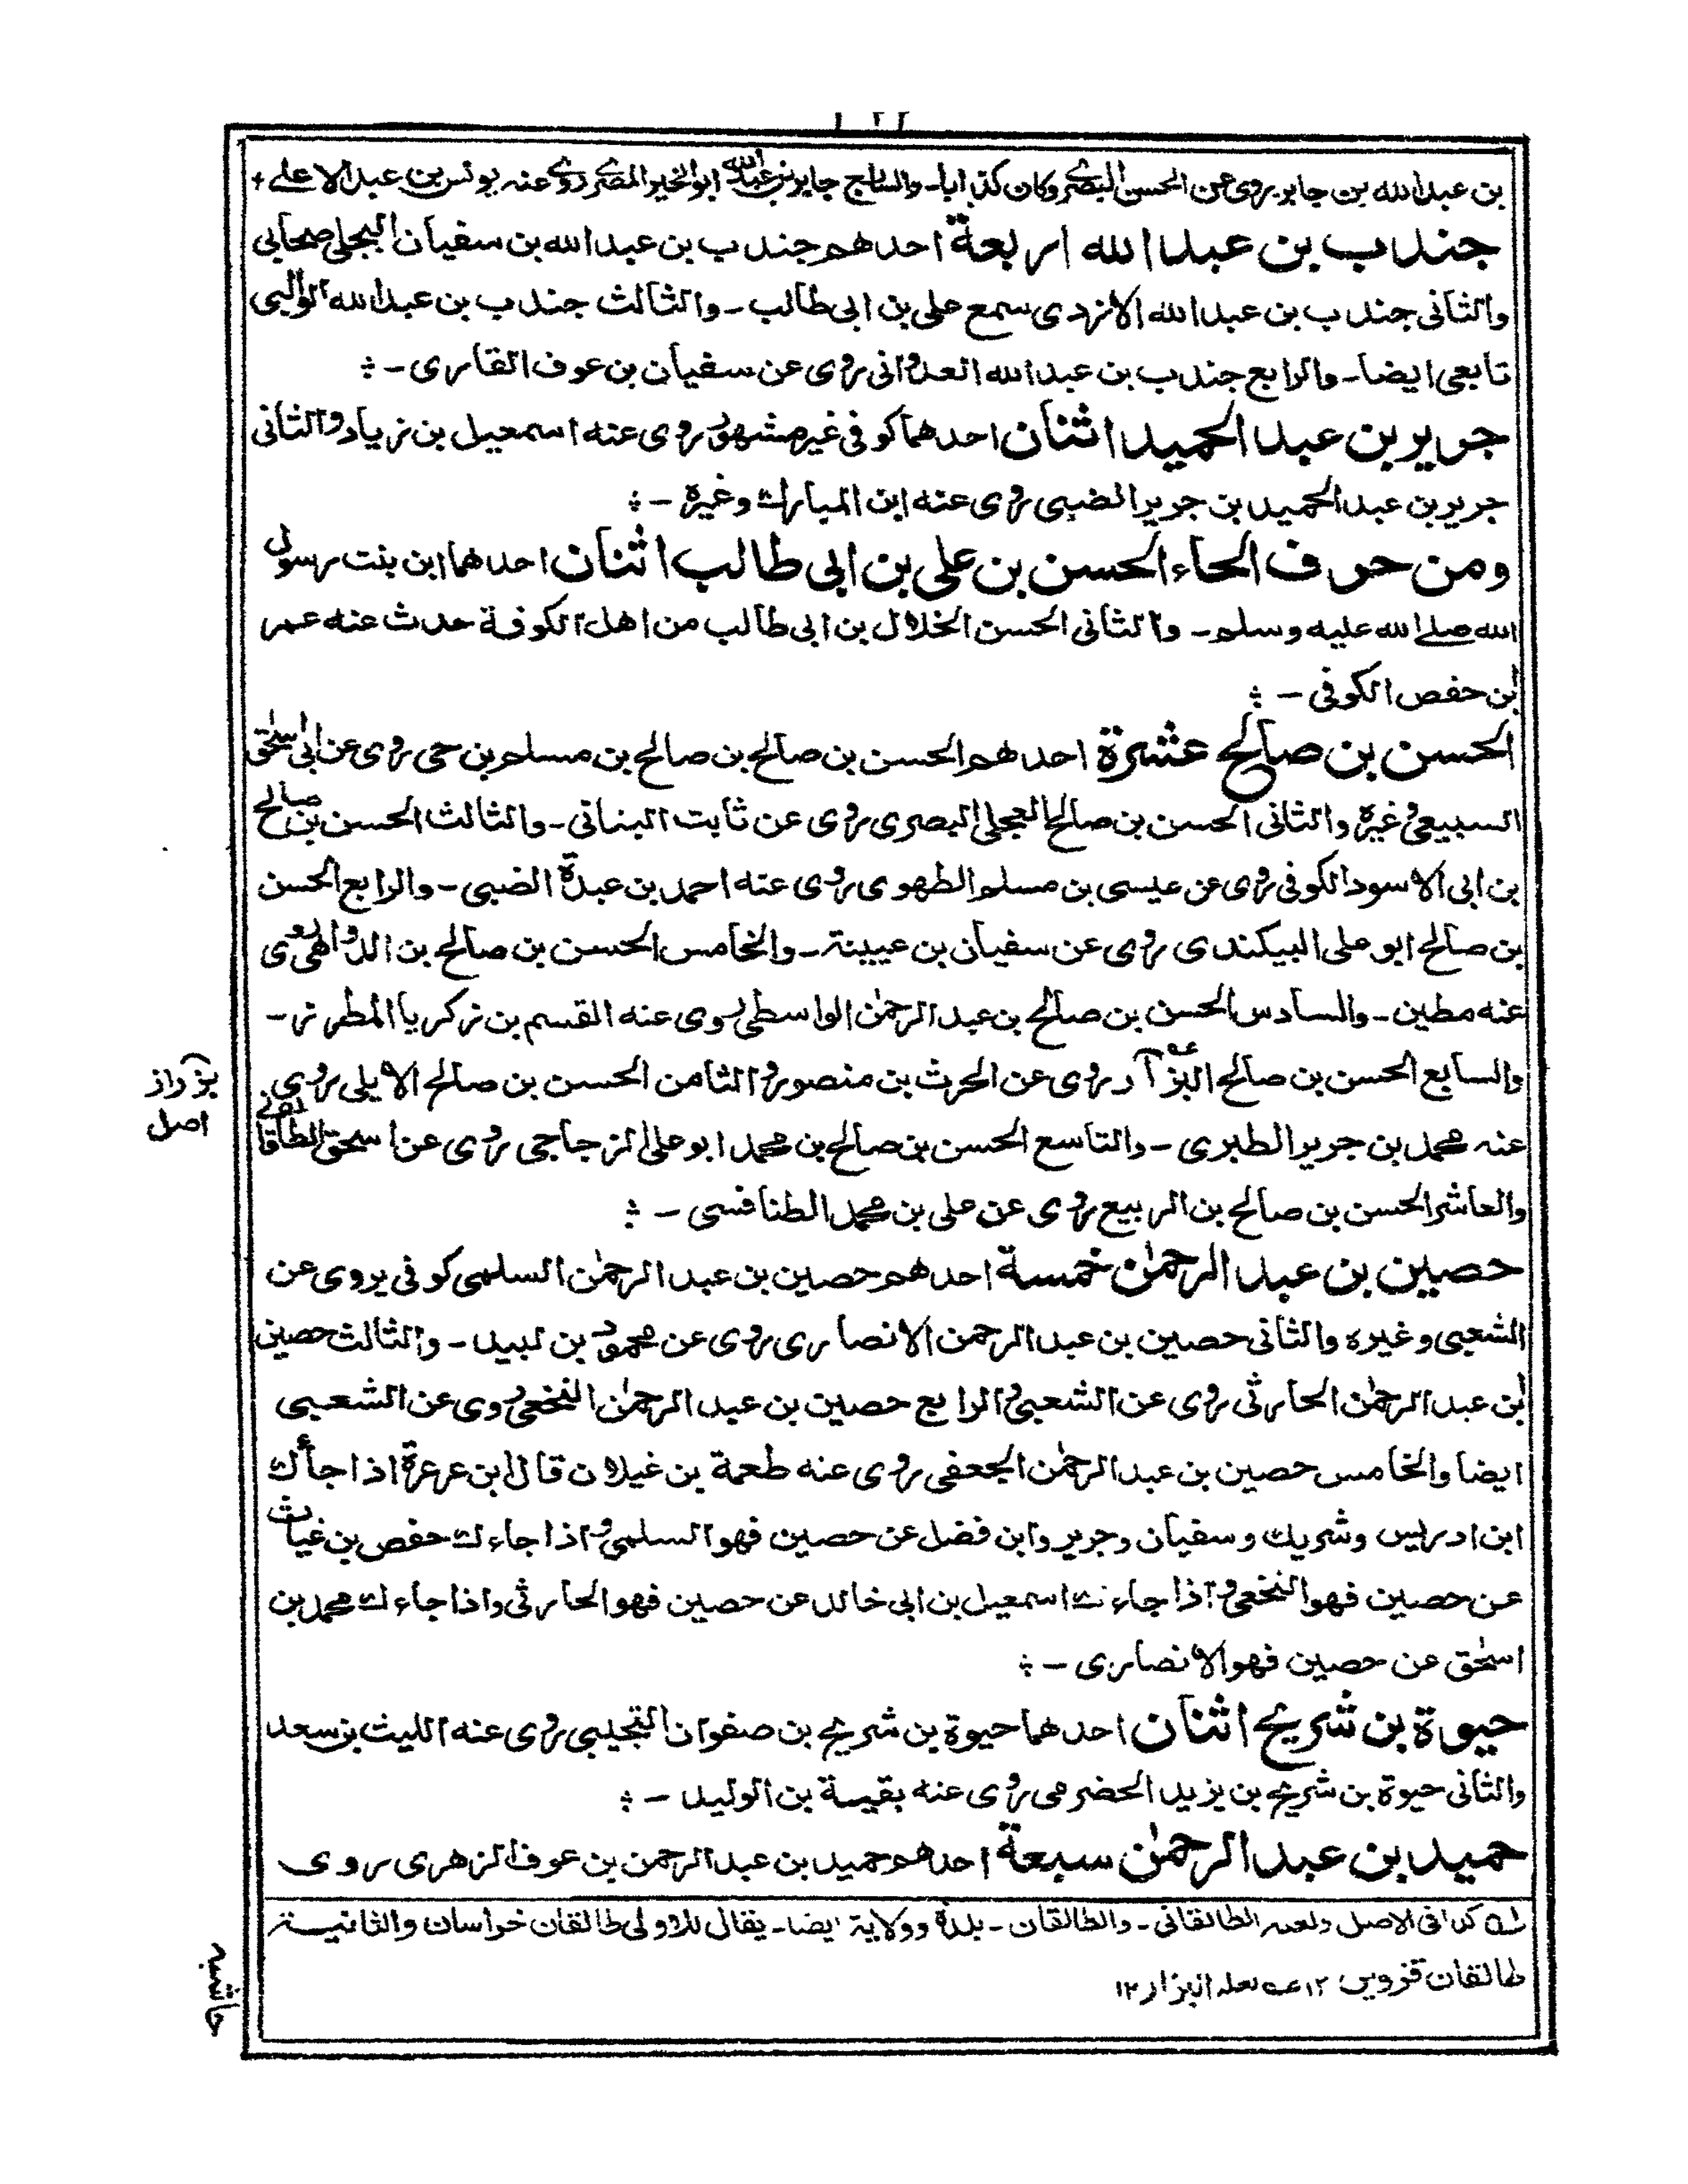 بن عبدالله بن جابر يروى عن الحسن البصرى وكان كذابا - والسابع جابر بن عبدالله ابوالخير المصرى روى عنه يونس بن عبدالاعلى +
جندب بن عبدالله اربعة احدهم جندب بن عبدالله بن سفيان البجلى صحابى
والثانى جندب بن عبدالله الازدى سمع على بن ابى طالب - والثالث جندب بن عبدالله الوالبى
تابعى ايضا - والرابع جندب بن عبدالله العدوانى روى عن سفيان بن عوف القارى -
جرير بن عبدالحميد اثنان احدهما كوفى غير مشهور روى عنه اسمعيل بن زياد والثانى
جرير بن عبدالحميد بن جرير الضبى روى عنه ابن المبارك وغيره -
ومن حرف الحاء الحسن بن على بن ابى طالب اثنان احدهما ابن بنت رسول
الله صلى الله عليه وسلم - والثانى الحسن الخلال بن ابى طالب من اهل الكوفة حدث عنه عمر
ابن حفص الكوفى -
الحسن بن صالح عشرة احدهم الحسن بن صالح بن صالح بن مسلم بن حى روى عن ابى اسحٰق
السبيعى وغيره والثانى الحسن بن صالح العجلى البصرى روى عن ثابت البنانى - والثالث الحسن بن صالح
بن ابى الاسود الكوفى روى عن عيسى بن مسلم الطهوى روى عنه احمد بن عبدة الضبى - والرابع الحسن
بن صالح ابو على البيكندى روى عن سفيان بن عيينة - والخامس الحسن بن صالح بن الدواهى روى
عنه مطين - والسادس الحسن بن صالح بن عبدالرحمٰن الواسطى روى عنه القسم بن زكريا المطرز -
والسابع الحسن بن صالح البزار روى عن الحرث بن منصور والثامن الحسن بن صالح الايلى روى
بزراز
اصل
عنه محمد بن جرير الطبرى - والتاسع الحسن بن صالح بن محمد ابو على الزجاجى روى عن اسحق الطاقانى
والعاشر الحسن بن صالح بن الربيع روى عن على بن محمد الطنافسى -
حصين بن عبد الرحمٰن خمسة احدهم حصين بن عبد الرحمٰن السلمى كوفى يروى عن
الشعبى وغيره والثانى حصين بن عبدالرحمن الانصارى روى عن محمود بن لبيد - والثالث حصين
ابن عبدالرحمٰن الحارثى روى عن الشعبى والرابع حصين بن عبدالرحمٰن النخعى روى عن الشعبى
ايضا والخامس حصين بن عبدالرحمٰن الجعفى روى عنه طعمة بن غيلان قال ابن عرعرة اذا جأك
ابن ادريس وشريك وسفيان وجرير وابن فضل عن حصين فهو السلمى واذا جاءك حفص بن غياث
عن حصين فهو النخعى واذا جاءك اسمعيل بن ابى خالد عن حصين فهو الحارثى واذا جاءك محمد بن
اسحٰق عن حصين فهو الانصارى -
حيوة بن شريح اثنان احدهما حيوة بن شريح بن صفوان التجيبى روى عنه الليث بن سعد
والثانى حيوة بن شريح بن يزيد الحضرمى روى عنه بقية بن الوليد -
حميد بن عبد الرحمٰن سبعة احدهم حميد بن عبدالرحمن بن عوف الزهرى روى
كذا فى الاصل ولعله الطالقانى - والطالقان - بلدة وولاية ايضا - يقال للاولى طالقان خراسان والثانية
طالقان قزوين ١٢ عه لعله البزار ١٢
حاشيه